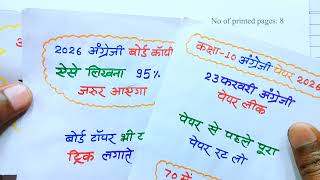 No of printed pages: 8
2026 अंग्रेजी बोर्ड कॉपी
ऐसे लिखना 95%
जरूर आएगा
बोर्ड टॉपर भी ट
ट्रिक लगाते
कक्षा-10 अंग्रेजी पेपर 2026
23 फरवरी अंग्रेजी
पेपर लीक
पेपर से पहले पूरा
पेपर रट लो
70 में